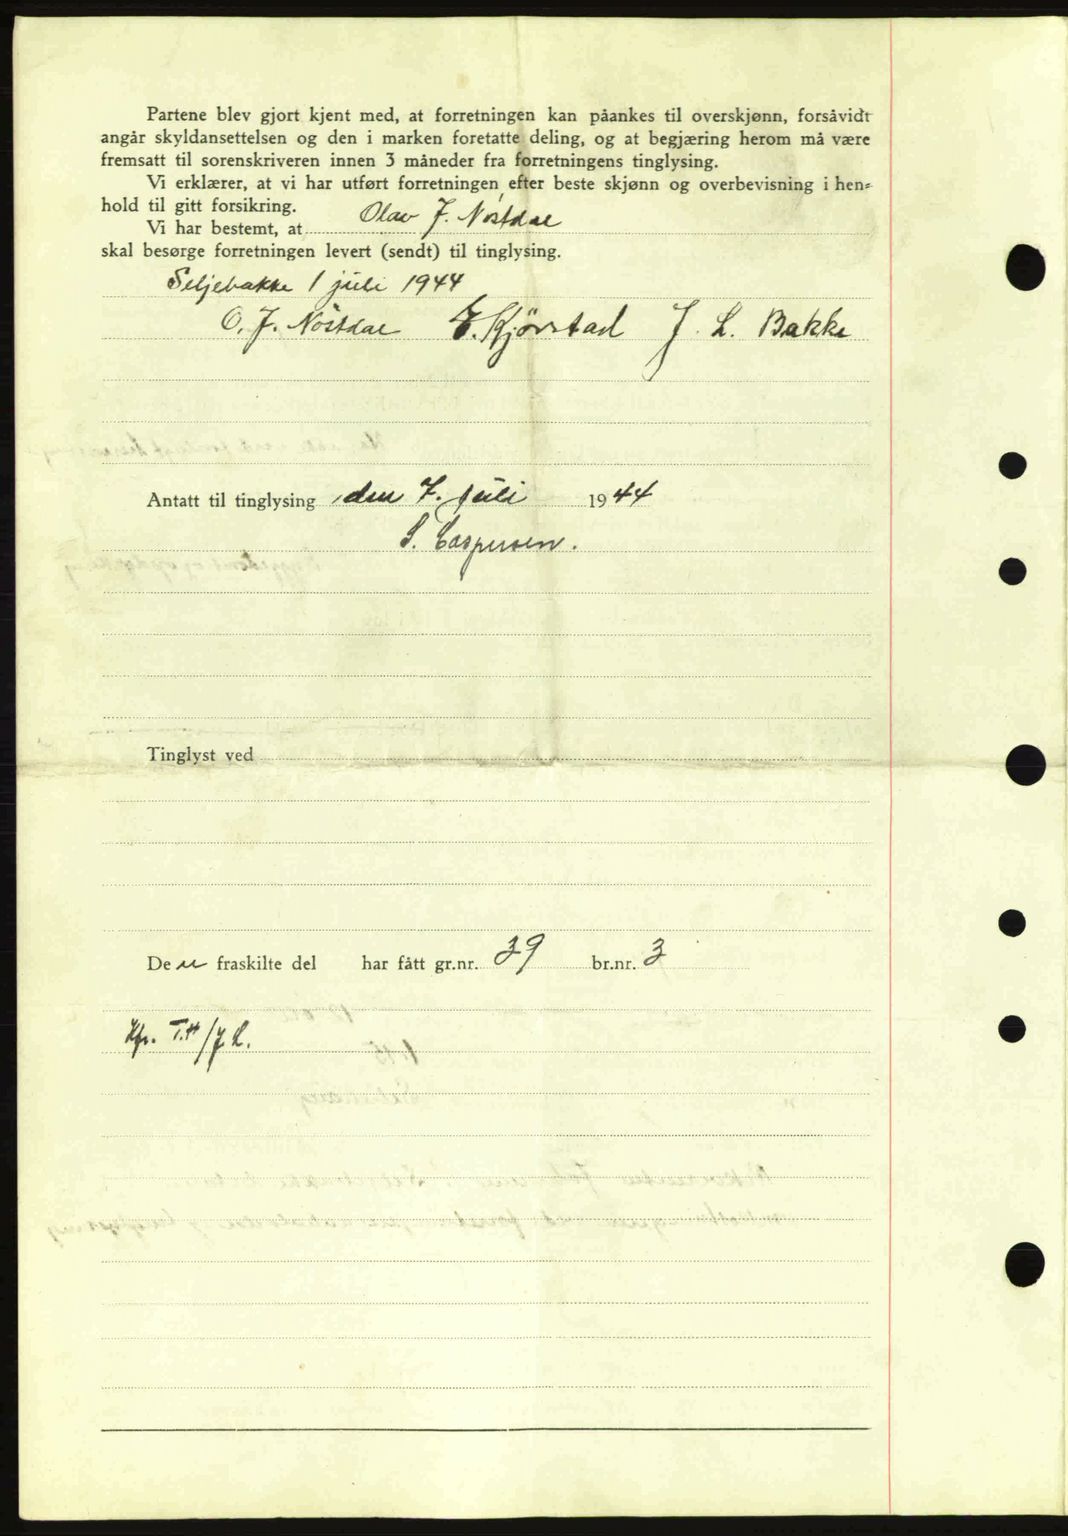 Partene blev gjort kjent med, at forretningen kan påankes til overskjønn, forsåvidt
angår skyldansettelsen og den i marken foretatte deling, og at begjæring herom må være
fremsatt til sorenskriveren innen 3 måneder fra forretningens tinglysing.
Vi erklærer, at vi har utført forretningen efter beste skjønn og overbevisning i hen-
hold til gitt forsikring.
Vi har bestemt, at Olav J. Nöstdal
skal besørge forretningen levert (sendt) til tinglysing.
Seljebakke 1 juli 1944
O. J. Nöstdal E. Kjörstad J. L. Bakke
Antatt til tinglysing den 7. juli 1944
S. Caspersen.
Tinglyst ved
Den fraskilte del har fått gr.nr. 39 br.nr. 3
Kfr. T.H/J.L.